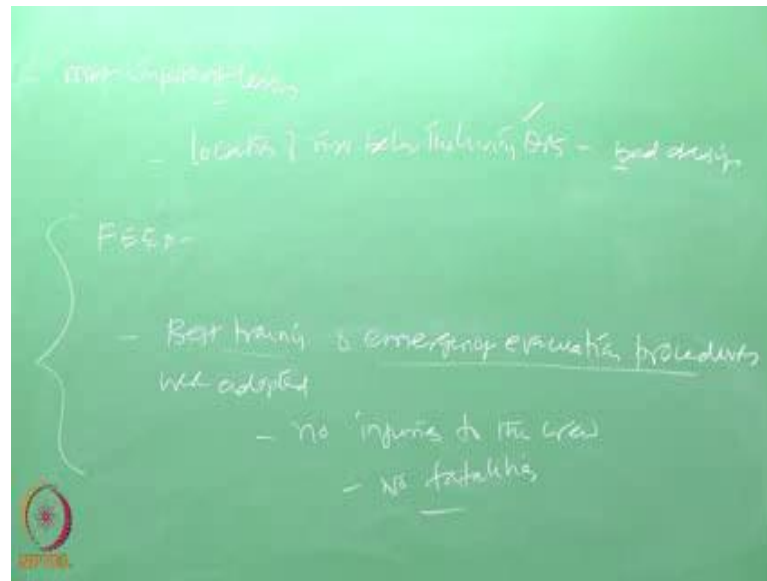 most important lesson
- location of riser below the living Qrs - bad design
FSCD-
- Best training & emergency evacuation procedures
were adopted
- no injuries to the crew
- No fatalities
NPTEL